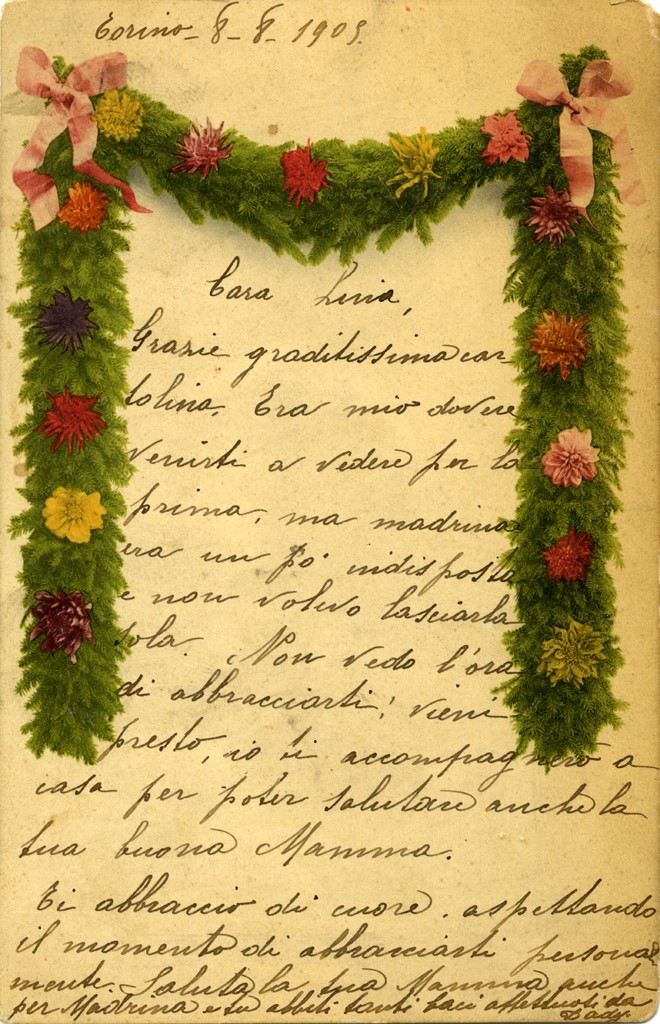 Torino - 8 - 8 - 1905.
Cara Livia,
Grazie graditissima car-
tolina. Era mio dovere
venirti a vedere per la
prima, ma madrina
era un po' indisposta
e non volevo lasciarla
sola. Non vedo l'ora
di abbracciarti; vieni
presto, io ti accompagnerò a
casa per poter salutare anche la
tua buona Mamma.
Ti abbraccio di cuore, aspettando
il momento di abbracciarti personal
mente. Saluta la tua Mamma anche
per Madrina e tu abbiti tanti baci affettuosi da
Dady.